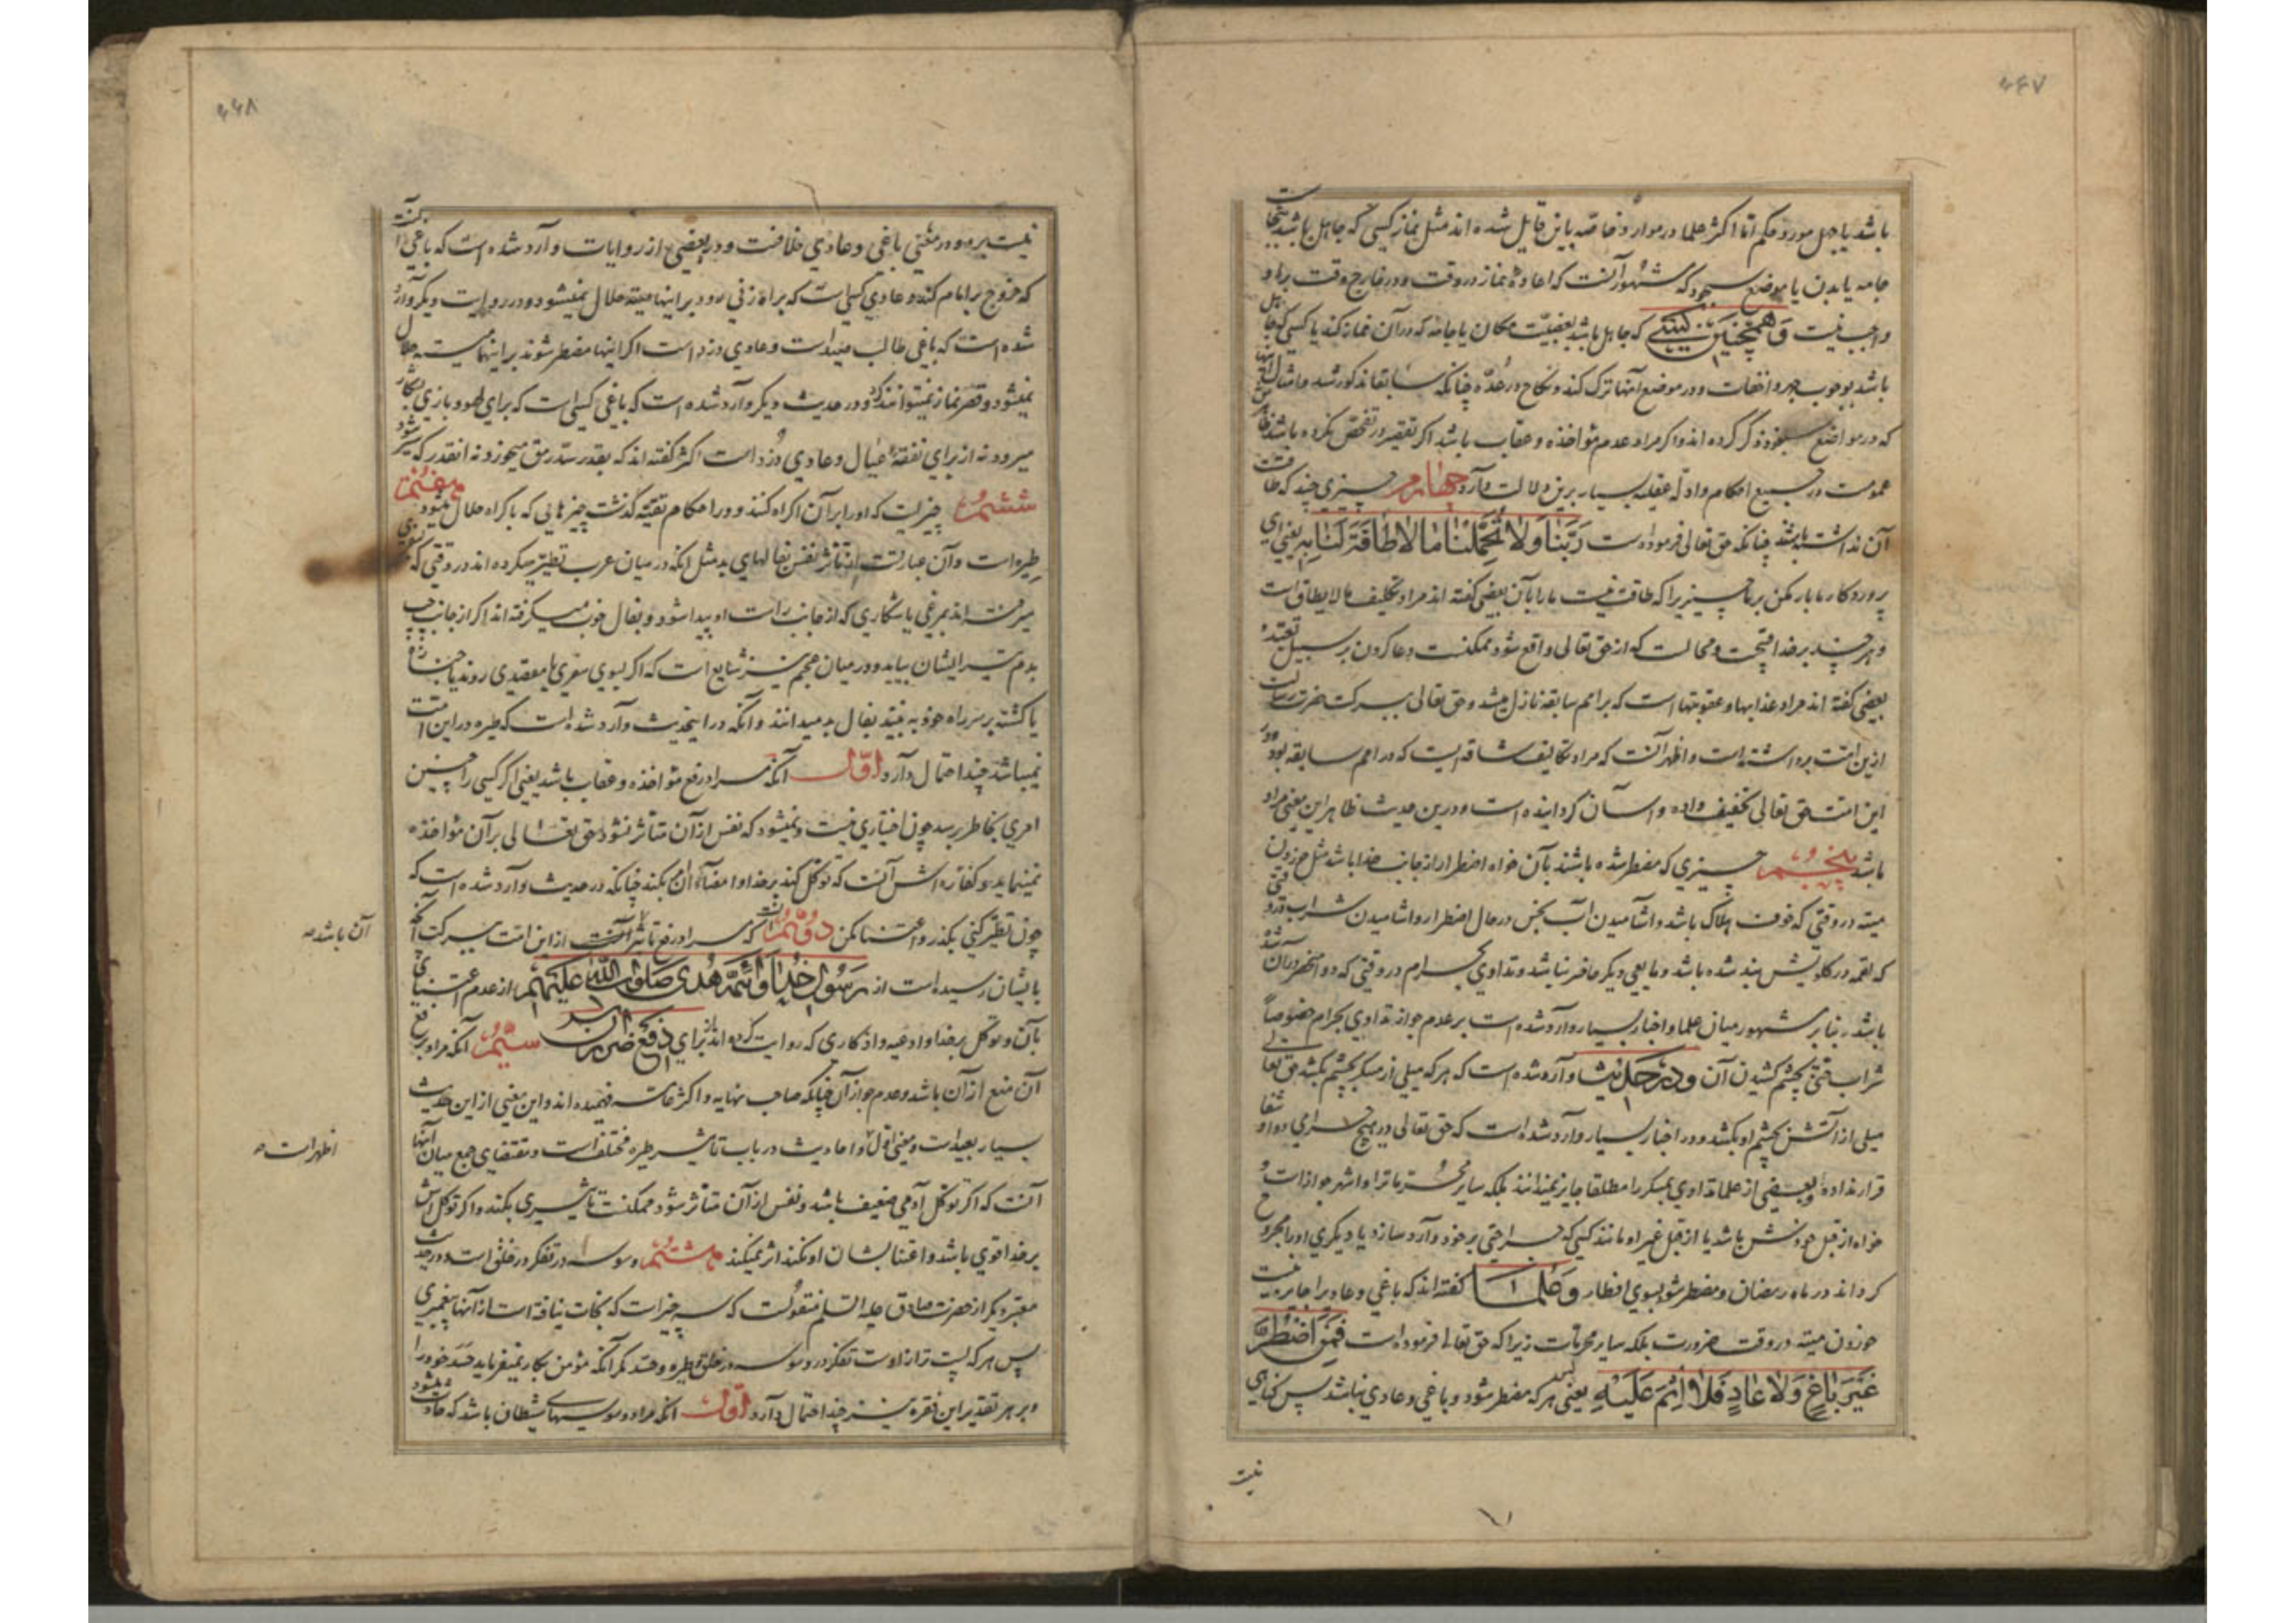 ۴۴۷
باشد یا جهل مورد حکم اما اکثر علما در موارد خاصه باین قایل شده اند مثل نماز کسی که جاهل باشد بنجاست
جامه یا بدن یا موضع سجود که مشهور آنست که اعادهٔ نماز در وقت و در خارج وقت بر او
واجب نیست و همچنین کسی که جاهل باشد بغصبیّت مکان یا جامه که در آن نماز کند یا کسی که جاهل
باشد بوجوب جهر و اخفات و در موضع آنها ترک کند و نکاح در عدّه چنانکه سابقا مذکور شد و امثال اینها
که در مواضع خود ذکر کرده اند و اگر مراد عدم مؤاخذه و عقاب باشد اگر تقصیر در تفحص نکرده باشد ظاهرش
عمومست در جمیع احکام و ادلّه عقلیه بسیار برین دلالت دارد چهارم چیزی چند که طاقت
آن نداشته باشند چنانکه حق تعالی فرموده است رَبَّنَا وَلَا تُحَمِّلْنَا مَا لَا طَاقَةَ لَنَا بِهِ یعنی ای
پروردکار ما بار مکن بر ما چیزیرا که طاقت نیست ما را بآن بعضی گفته اند مراد تکلیف ما لا یطاق است
و هر چند بر خدا قبیحست و محالست که از حق تعالی واقع شود ممکنست دعا کردن بر سبیل تعبّد و
بعضی گفته اند مراد عذابها و عقوبتها است که بر امم سابقه نازل میشد و حق تعالی ببرکت حضرت رسالت
ازین امّت برداشته است و اظهر آنست که مراد تکالیف شاقه ایست که در امم سابقه بود و بر
این امّت حق تعالی تخفیف داده و آسان گردانیده است و درین حدیث ظاهر این معنی مراد
باشد پنجم چیزی که مضطر شده باشند بآن خواه اضطرار از جانب خدا باشد مثل خوردن
میته در وقتی که خوف هلاک باشد و اشامیدن آب نجس در حال اضطرار و اشامیدن شراب در وقتی
که لقمه در گلویش بند شده باشد و مایعی دیگر حاضر نباشد و تداوی بحرام در وقتی که دوا منحصر در آن شده
باشد بنا بر مشهور میان علما و اخبار بسیار وارد شده است بر عدم جواز تداوی بحرام خصوصاً
شراب حتی بچشم کشیدن آن و در حدیث وارد شده است که هر که میلی از مسکر بچشم بکشد حق تعالی
میلی از آتش بچشم او بکشد و در اخبار بسیار وارد شده است که حق تعالی در هیچ حرامی دوا و شفا
قرار نداده و بعضی از علما تداوی بمسکر را مطلقا جایز نمیدانند بلکه سایر محرّمات را و اشهر جواز است و
خواه از قبل خودش باشد یا از قبل غیر او مانند کسی که جراحتی بر خود وارد سازد یا دیگری او را مجروح
گرداند در ماه رمضان و مضطر شود بسوی افطار و علما گفته اند که باغی و عادی را جایز نیست
خوردن میته در وقت ضرورت بلکه سایر محرمات زیرا که حق تعالی فرموده است فَمَنِ اضْطُرَّ
غَيْرَ بَاغٍ وَلَا عَادٍ فَلَا إِثْمَ عَلَيْهِ یعنی پس هر که مضطر شود و باغی و عادی نباشد پس گناهی
نیست
۴۴۸
نیست بر او و در معنی باغی و عادی خلافست و در بعضی از روایات وارد شده است که باغی آنست
که خروج بر امام کند و عادی کسی است که براه زنی رود بر اینها میته حلال نمیشود و در روایت دیگر وارد
شده است که باغی طالب صید است و عادی دزد است اگر اینها مضطر شوند بر اینها میته حلال
نمیشود و قصر نماز نمیتوانند کرد و در حدیث دیگر وارد شده است که باغی کسی است که برای لهو و بازی بشکار
میرود نه از برای نفقهٔ عیال و عادی دزد است اکثر گفته اند که بقدر سدّ رمق میخورد نه انقدر که سیر شود
ششم چیزیست که او را بر آن اکراه کنند و در احکام تقیّه گذشت چیزهایی که باکراه حلال میشود هفتم
طیره است و آن عبارتست از تأثر نفس بفالهای بد مثل انکه در میان عرب تطیّر میکرده اند در وقتی که بسفری
میرفته اند بمرغی یا شکاری که از جانب راست او پیدا شود و بفال خوب میگرفته اند و اگر از جانب چپ
بدم تیر ایشان بیاید و در میان عجم نیز شایع است که اگر بسوی سفری یا مقصدی روند یا جنازه
یا کشته بر سر راه خود به بینند بفال بد میدانند و آنکه در اینحدیث وارد شده است که طیره در این امّت
نمیباشد چند احتمال دارد اوّل آنکه مراد رفع مؤاخذه و عقاب باشد یعنی اگر کسی را چنین
امری بخاطر برسد چون اختیاری نیست و نمیشود که نفس از آن متأثر نشود حق تعالی بر آن مؤاخذه
نمینماید و کفاره اش آنست که توکل کند بر خدا و امضای آن بکند چنانکه در حدیث وارد شده است که
چون تطیّر کنی بگذر و اعتنا مکن دوّم آنست که مراد رفع تأثیر آنست از این امّت ببرکت آنچه
بایشان رسیده است از رسول خدا و ائمّه هدی صلوات الله علیهم از عدم اعتنای
بآن و توکل بر خدا و ادعیه و اذکاری که روایت کرده اند از برای دفع ضرر آن سیّم آنکه مراد برفع
آن منع از آن باشد و عدم جواز آن چنانکه صاحب نهایه و اکثر عامه فهمیده اند و این معنی از این حدیث
بسیار بعید است و معنی اوّل و احادیث در باب تأثیر طیره مختلف است و مقتضای جمع میان آنها
آنست که اگر توکل آدمی ضعیف باشد و نفس از آن متأثر شود ممکنست تأثیری بکند و اگر توکل اش
بر خدا قوی باشد و اعتنا بشأن او نکند اثر نمیکند هشتم وسوسه در تفکر در خلق است و در حدیث
معتبر دیگر از حضرت صادق علیه السلم منقولست که سه چیز است که نجات نیافته است از آنها پیغمبری
پس هر که پست تر از اوست تفکر در وسوسه در خلق و طیره و حسد مگر آنکه مؤمن بکار نمیفرماید حسد خود را
و بر هر تقدیر این فقره نیز چند احتمال دارد اوّل انکه مراد وسوسهای شیطان باشد که حادث میشود
آن باشد
اظهر است